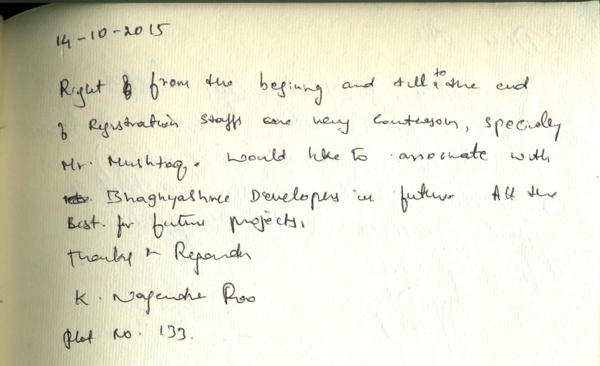 14-10-2015
Right from the begining and till to the end
of Registration staffs are very courteous, specially
Mr. Mushtaq. Would like to associate with
Bhaghyashree Developers in future. All the
Best for future projects.
Thanks & Regards
K. Nagendra Rao
Plot no. 133.